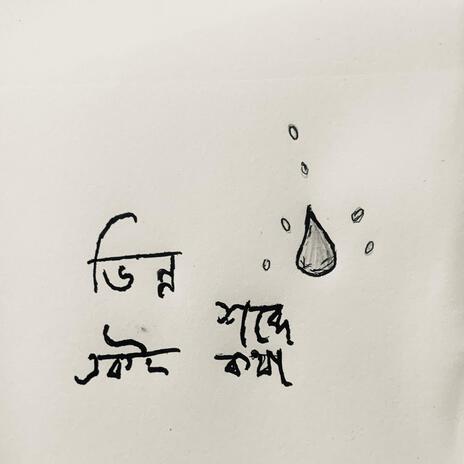 ভিন্ন শব্দে
একই কথা